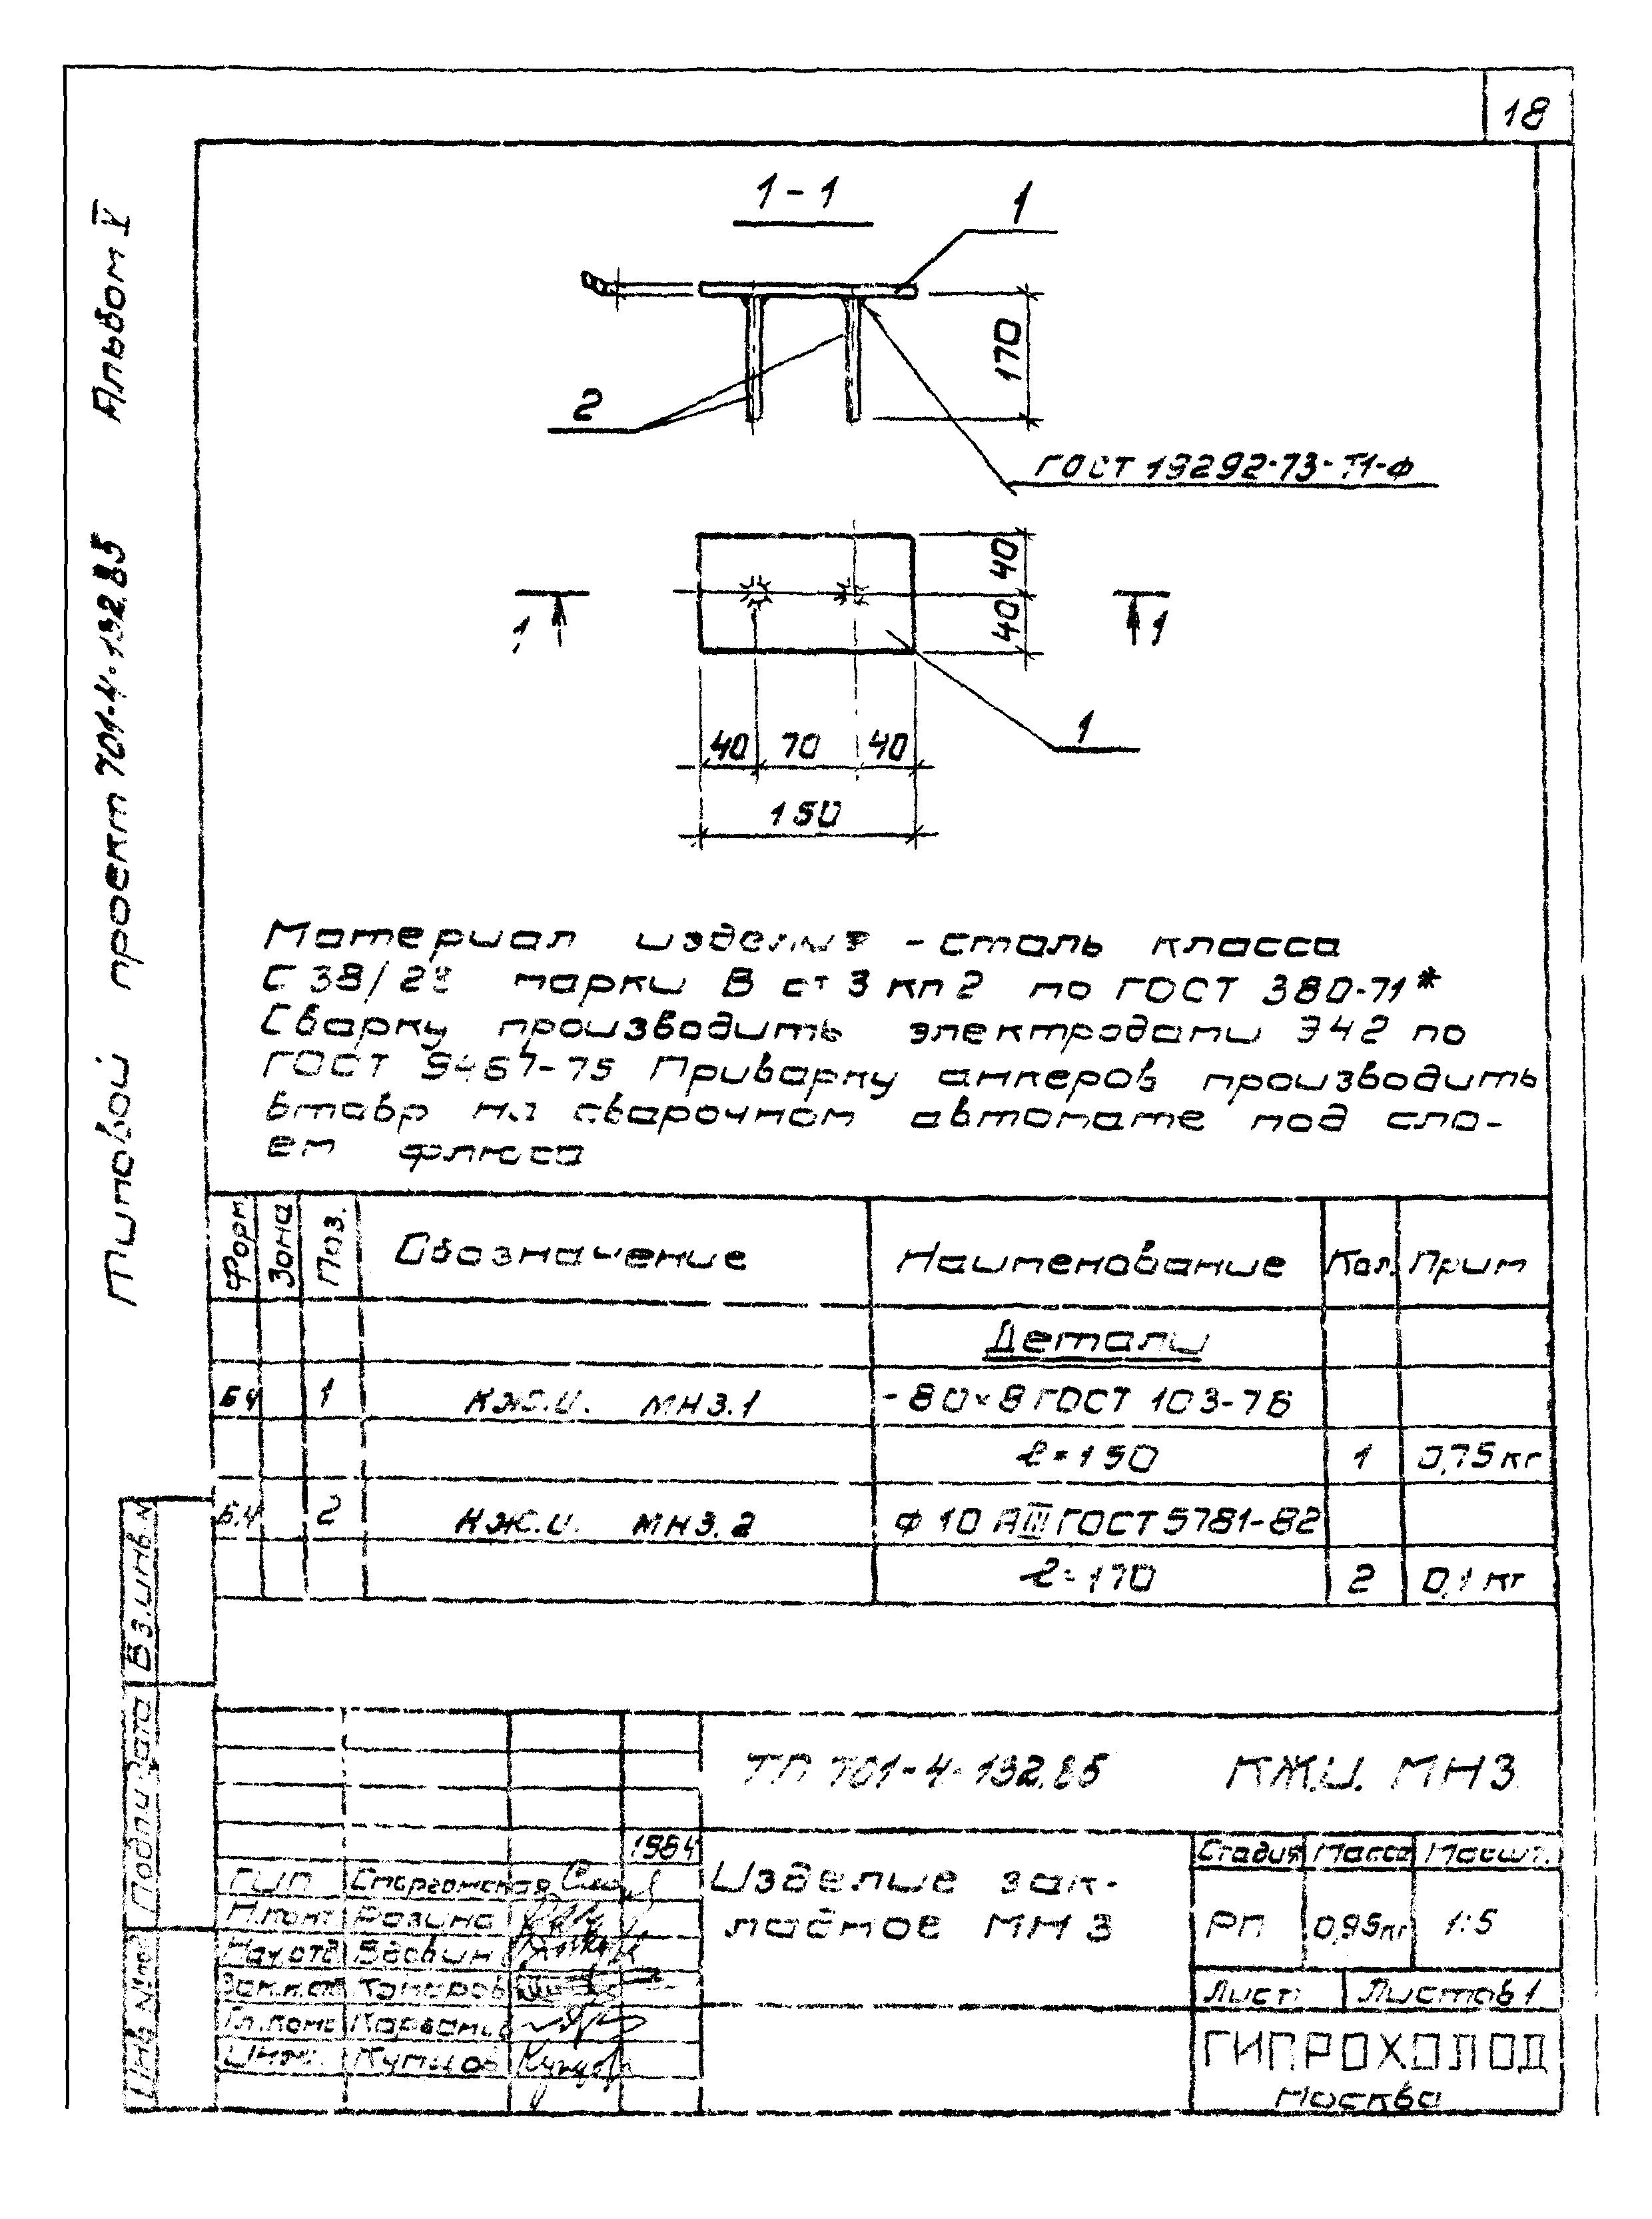 18
Альбом V
Типовой проект 701-4-132.85
1-1
1
170
2
ГОСТ 19292-73-Т1-Ф
40
40
1
1
1
40 70 40
150
Материал изделия - сталь класса
С 38/23 марки В ст 3 кп 2 по ГОСТ 380-71*
Сварку производить электродами Э42 по
ГОСТ 9467-75 Приварку анкеров производить
втавр на сварочном автомате под сло-
ем флюса
Форм Зона Поз. Обозначение Наименование Кол. Прим
Детали
БЧ 1 КЖ.И. МН3.1 - 80×8 ГОСТ 103-76
ℓ=150 1 0,75 кг
Б.Ч 2 КЖ.И. МН3.2 Ф 10 АIII ГОСТ 5781-82
ℓ=170 2 0,1 кг
Вз.инв.N
Подпись и дата
Инв. №
ТП 701-4-132.85 КЖ.И. МН3
1984
Изделие зак-
ладное МН3
Стадия Масса Масшт.
РП 0,95кг 1:5
Лист Листов 1
ГИПРОХОЛОД
Москва
ГИП
Н.конт Розина
Нач.отд Вдовин
Гл.конс
Инж. Купцов